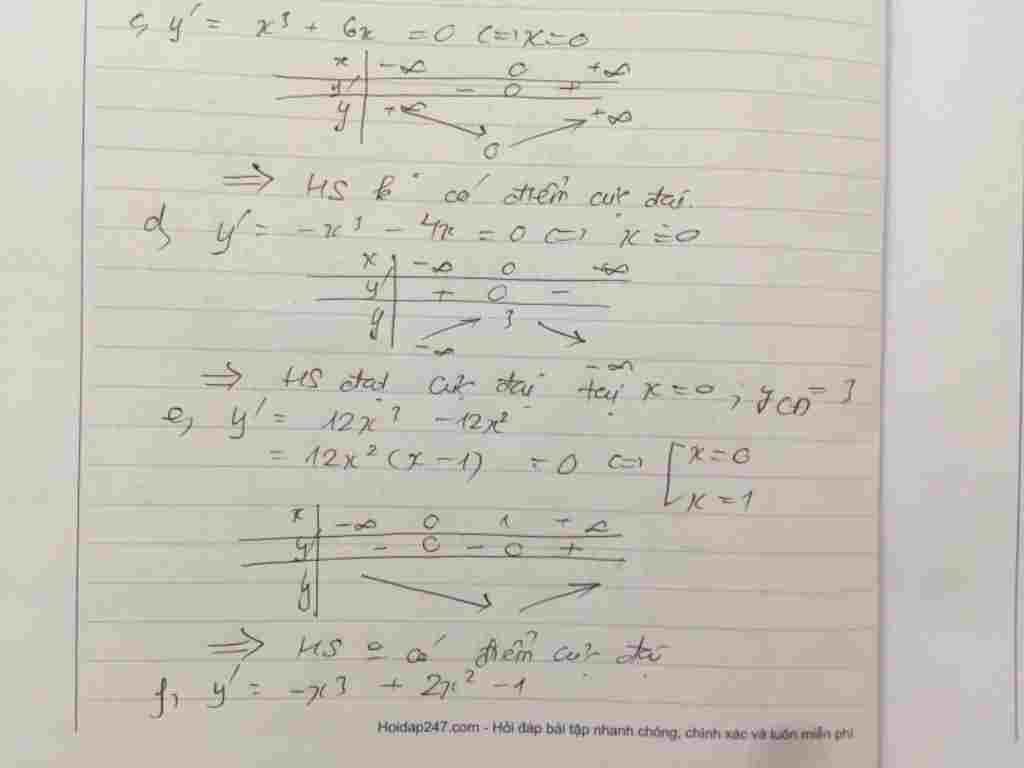 c, y' = x³ + 6x = 0 <=> x=0
x | -∞ 0 +∞
y' | - 0 +
y | +∞ 0 +∞
=> HS k° có điểm cực đại.
d, y' = -x³ - 4x = 0 <=> x=0
x | -∞ 0 +∞
y' | + 0 -
y | -∞ 3 -∞
=> HS đạt cực đại tại x=0; yCD = 3
e, y' = 12x³ - 12x²
= 12x² (x-1) = 0 <=> [ x=0
x=1
x | -∞ 0 1 +∞
y' | - 0 - 0 +
y |
=> HS có điểm cực đại
f, y' = -x³ + 2x² - 1
Hoidap247.com - Hỏi đáp bài tập nhanh chóng, chính xác và luôn miễn phí